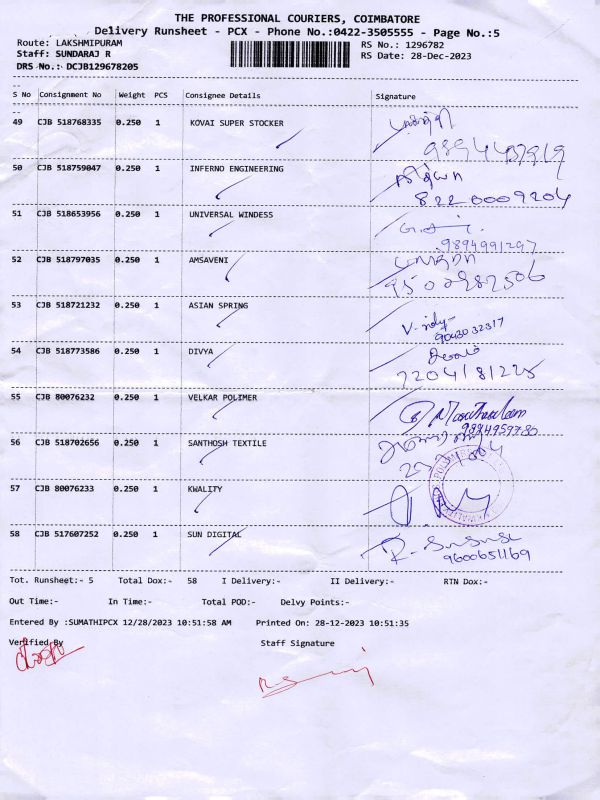 THE PROFESSIONAL COURIERS, COIMBATORE
Delivery Runsheet - PCX - Phone No.:0422-3505555 - Page No.:5
Route: LAKSHMIPURAM RS No.: 1296782
Staff: SUNDARAJ R RS Date: 28-Dec-2023
DRS No.: DCJB129678205
S No Consignment No Weight PCS Consignee Details Signature
49 CJB 518768335 0.250 1 KOVAI SUPER STOCKER
50 CJB 518759047 0.250 1 INFERNO ENGINEERING
8220009204
51 CJB 518653956 0.250 1 UNIVERSAL WINDESS
9894991297
52 CJB 518797035 0.250 1 AMSAVENI
9500982506
53 CJB 518721232 0.250 1 ASIAN SPRING
9043032317
54 CJB 518773586 0.250 1 DIVYA
55 CJB 80076232 0.250 1 VELKAR POLIMER
56 CJB 518702656 0.250 1 SANTHOSH TEXTILE
57 CJB 80076233 0.250 1 KWALITY
58 CJB 517607252 0.250 1 SUN DIGITAL
9600651169
Tot. Runsheet:- 5 Total Dox:- 58 I Delivery:- II Delivery:- RTN Dox:-
Out Time:- In Time:- Total POD:- Delvy Points:-
Entered By :SUMATHIPCX 12/28/2023 10:51:58 AM Printed On: 28-12-2023 10:51:35
Verified By Staff Signature